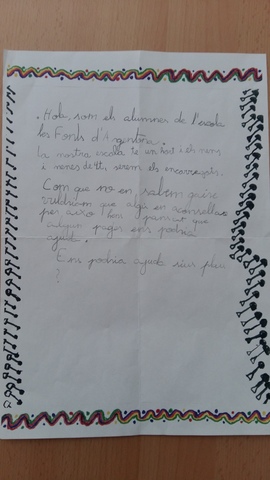 . Hola, som els alumnes de l'escola
les Fonts d'Argentona.
la nostra escola té un hort i els nens
i nenes de 4t, serem els encarregats.
Com que no en sabem gaire
voldriam que algú en aconsellas
per això hem pensat que
algun pages ens podria
ajudar.
Ens podria ajudar sius plau
?